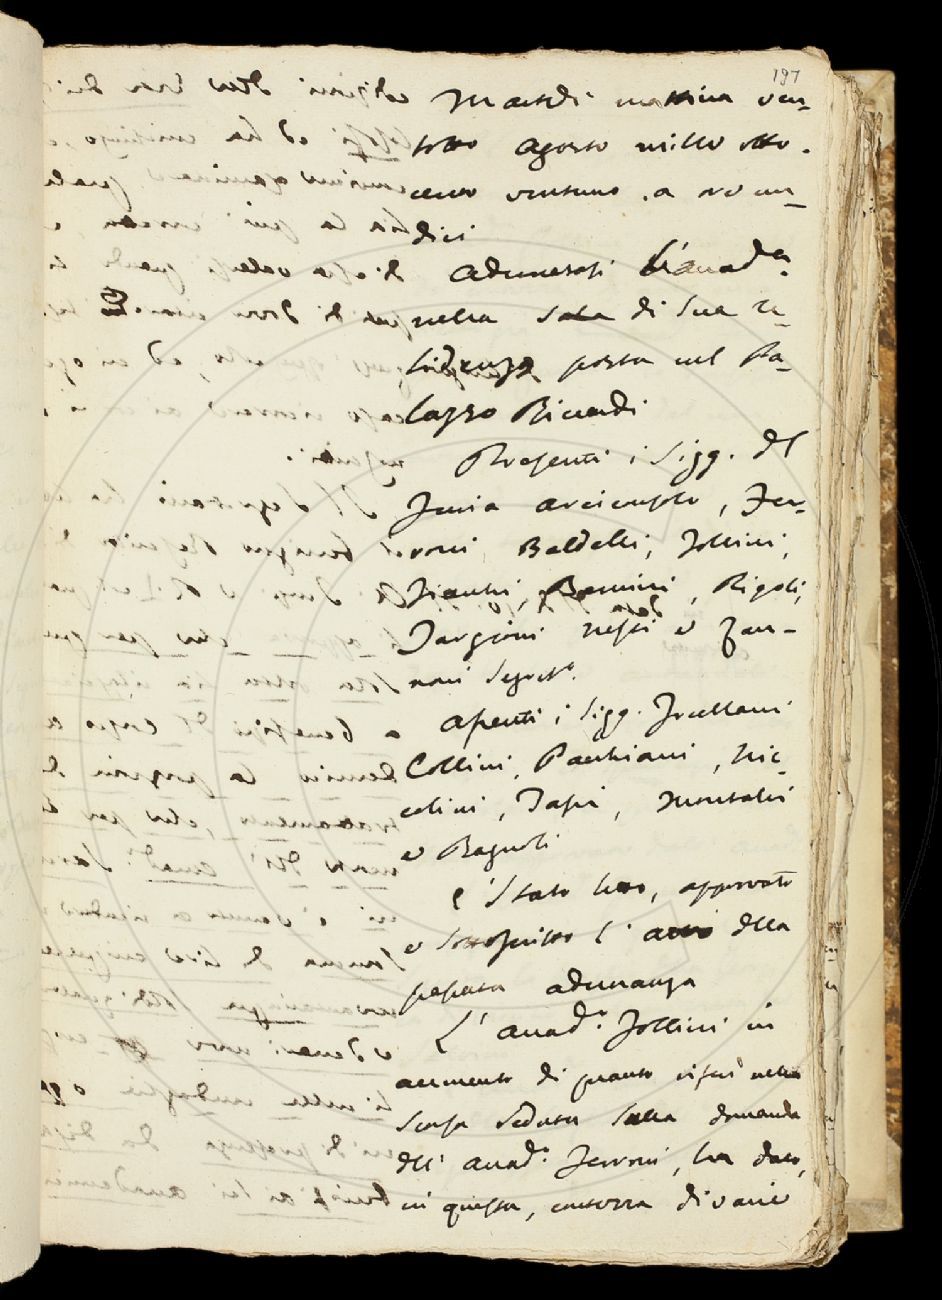 197
Martedì mattina ven-
totto Agosto mille otto-
cento ventuno . a ore un-
dici
Adunatasi l'Accad.a
nella Sala di Sua re-
sidenza posta nel Pa-
lazzo Riccardi
Presenti i Sigg. Del
Furia Arciconsolo, Fer-
roni, Baldelli, Follini,
Fiacchi, Rigoli,
Targioni Nesti e Zan-
noni Segret.o
Assenti i Sigg. Frullani
Collini, Pacchiani, Nic-
colini, Sarti, Montalvi
e Bagnoli
È stato letto, approvato
e sottoscritto l'atto della
passata adunanza
L'Accad.o Follini in
aumento di quanto riferì nella
scorsa seduta sulla domanda
dell' Accad.o Ferroni, ha dato,
in questa, contezza di varie